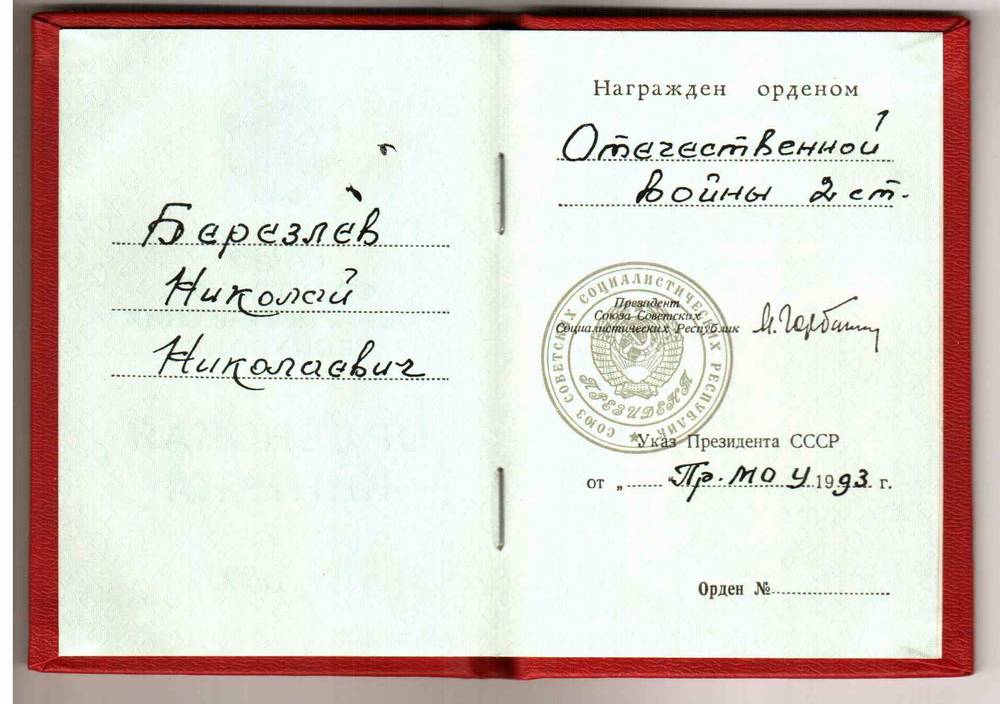 Березлев
Николай
Николаевич
Награжден орденом
Отечественной
войны 2 ст.
СОЮЗ СОВЕТСКИХ СОЦИАЛИСТИЧЕСКИХ РЕСПУБЛИК
Президент
Союза Советских
Социалистических Республик
ПРЕЗИДЕНТ
М. Горбачев
Указ Президента СССР
от „ Пр. МО У 1993 г.
Орден №